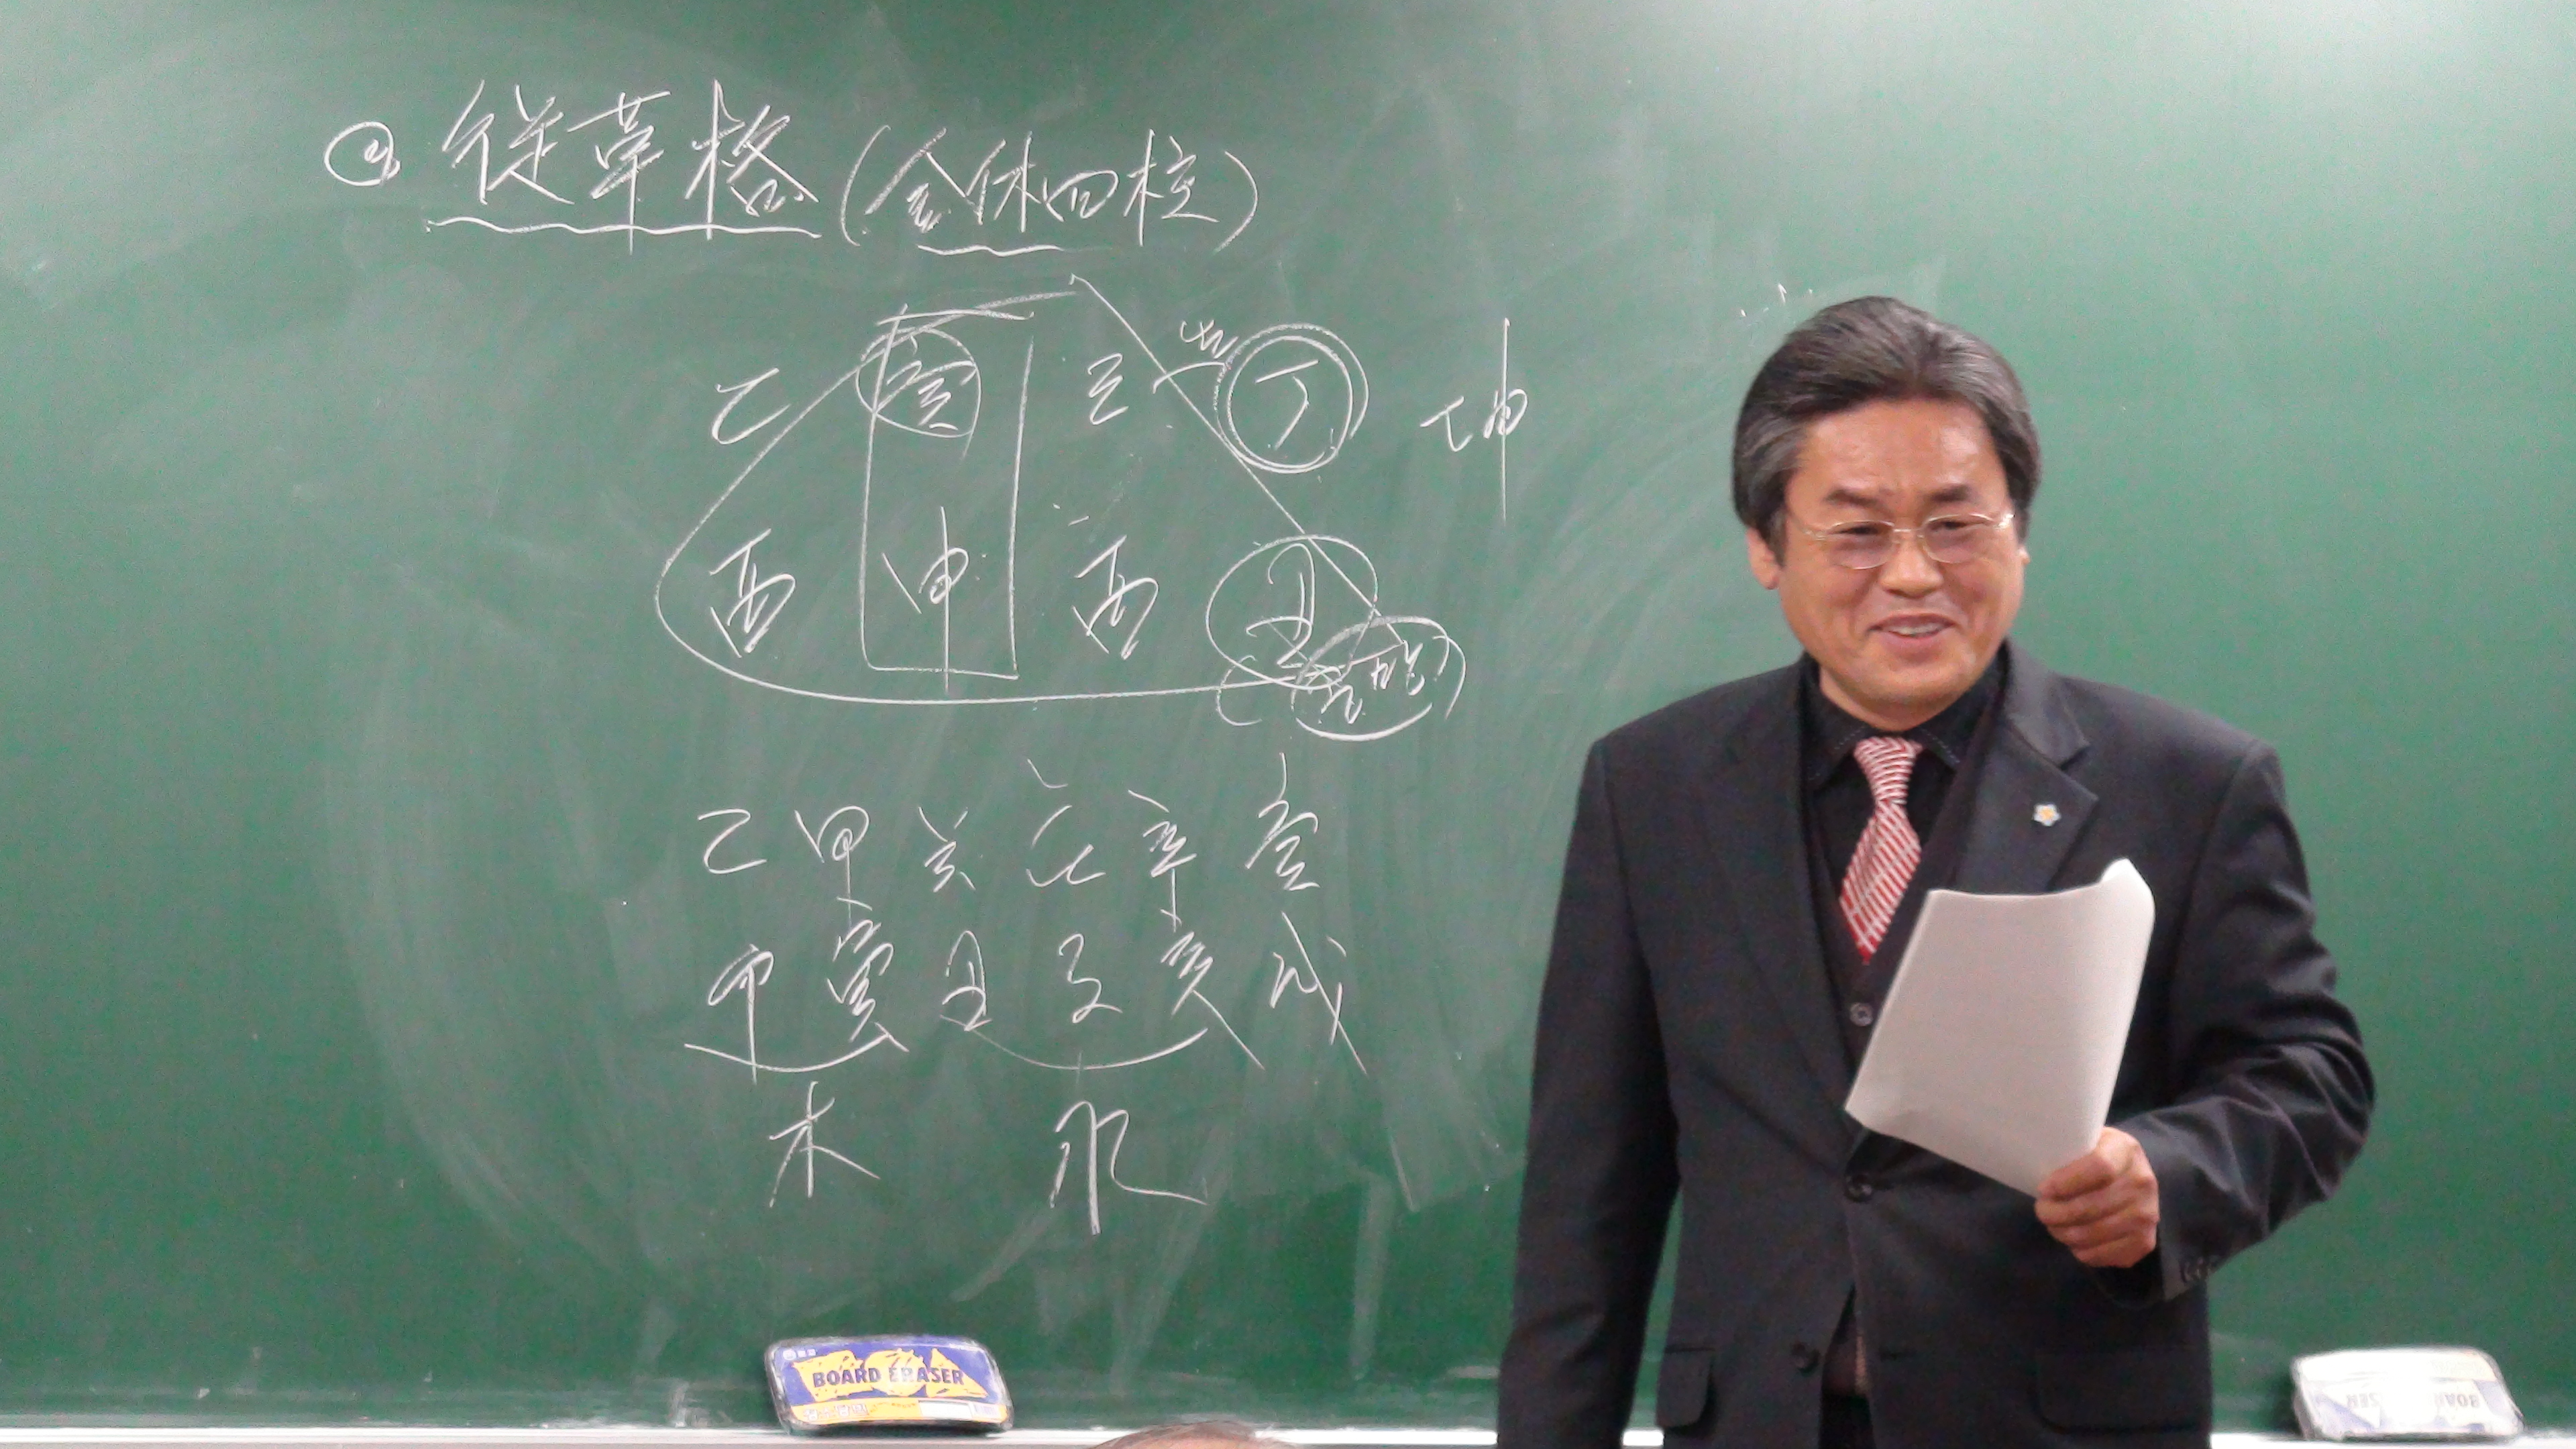 ④ 從革格 (金体四柱)
乙 庚 己 生 丁 坤
酉 申 酉 丑
乙 甲 癸 壬 辛 庚
卯 寅 丑 子 亥 戌
木 水
BOARD ERASER